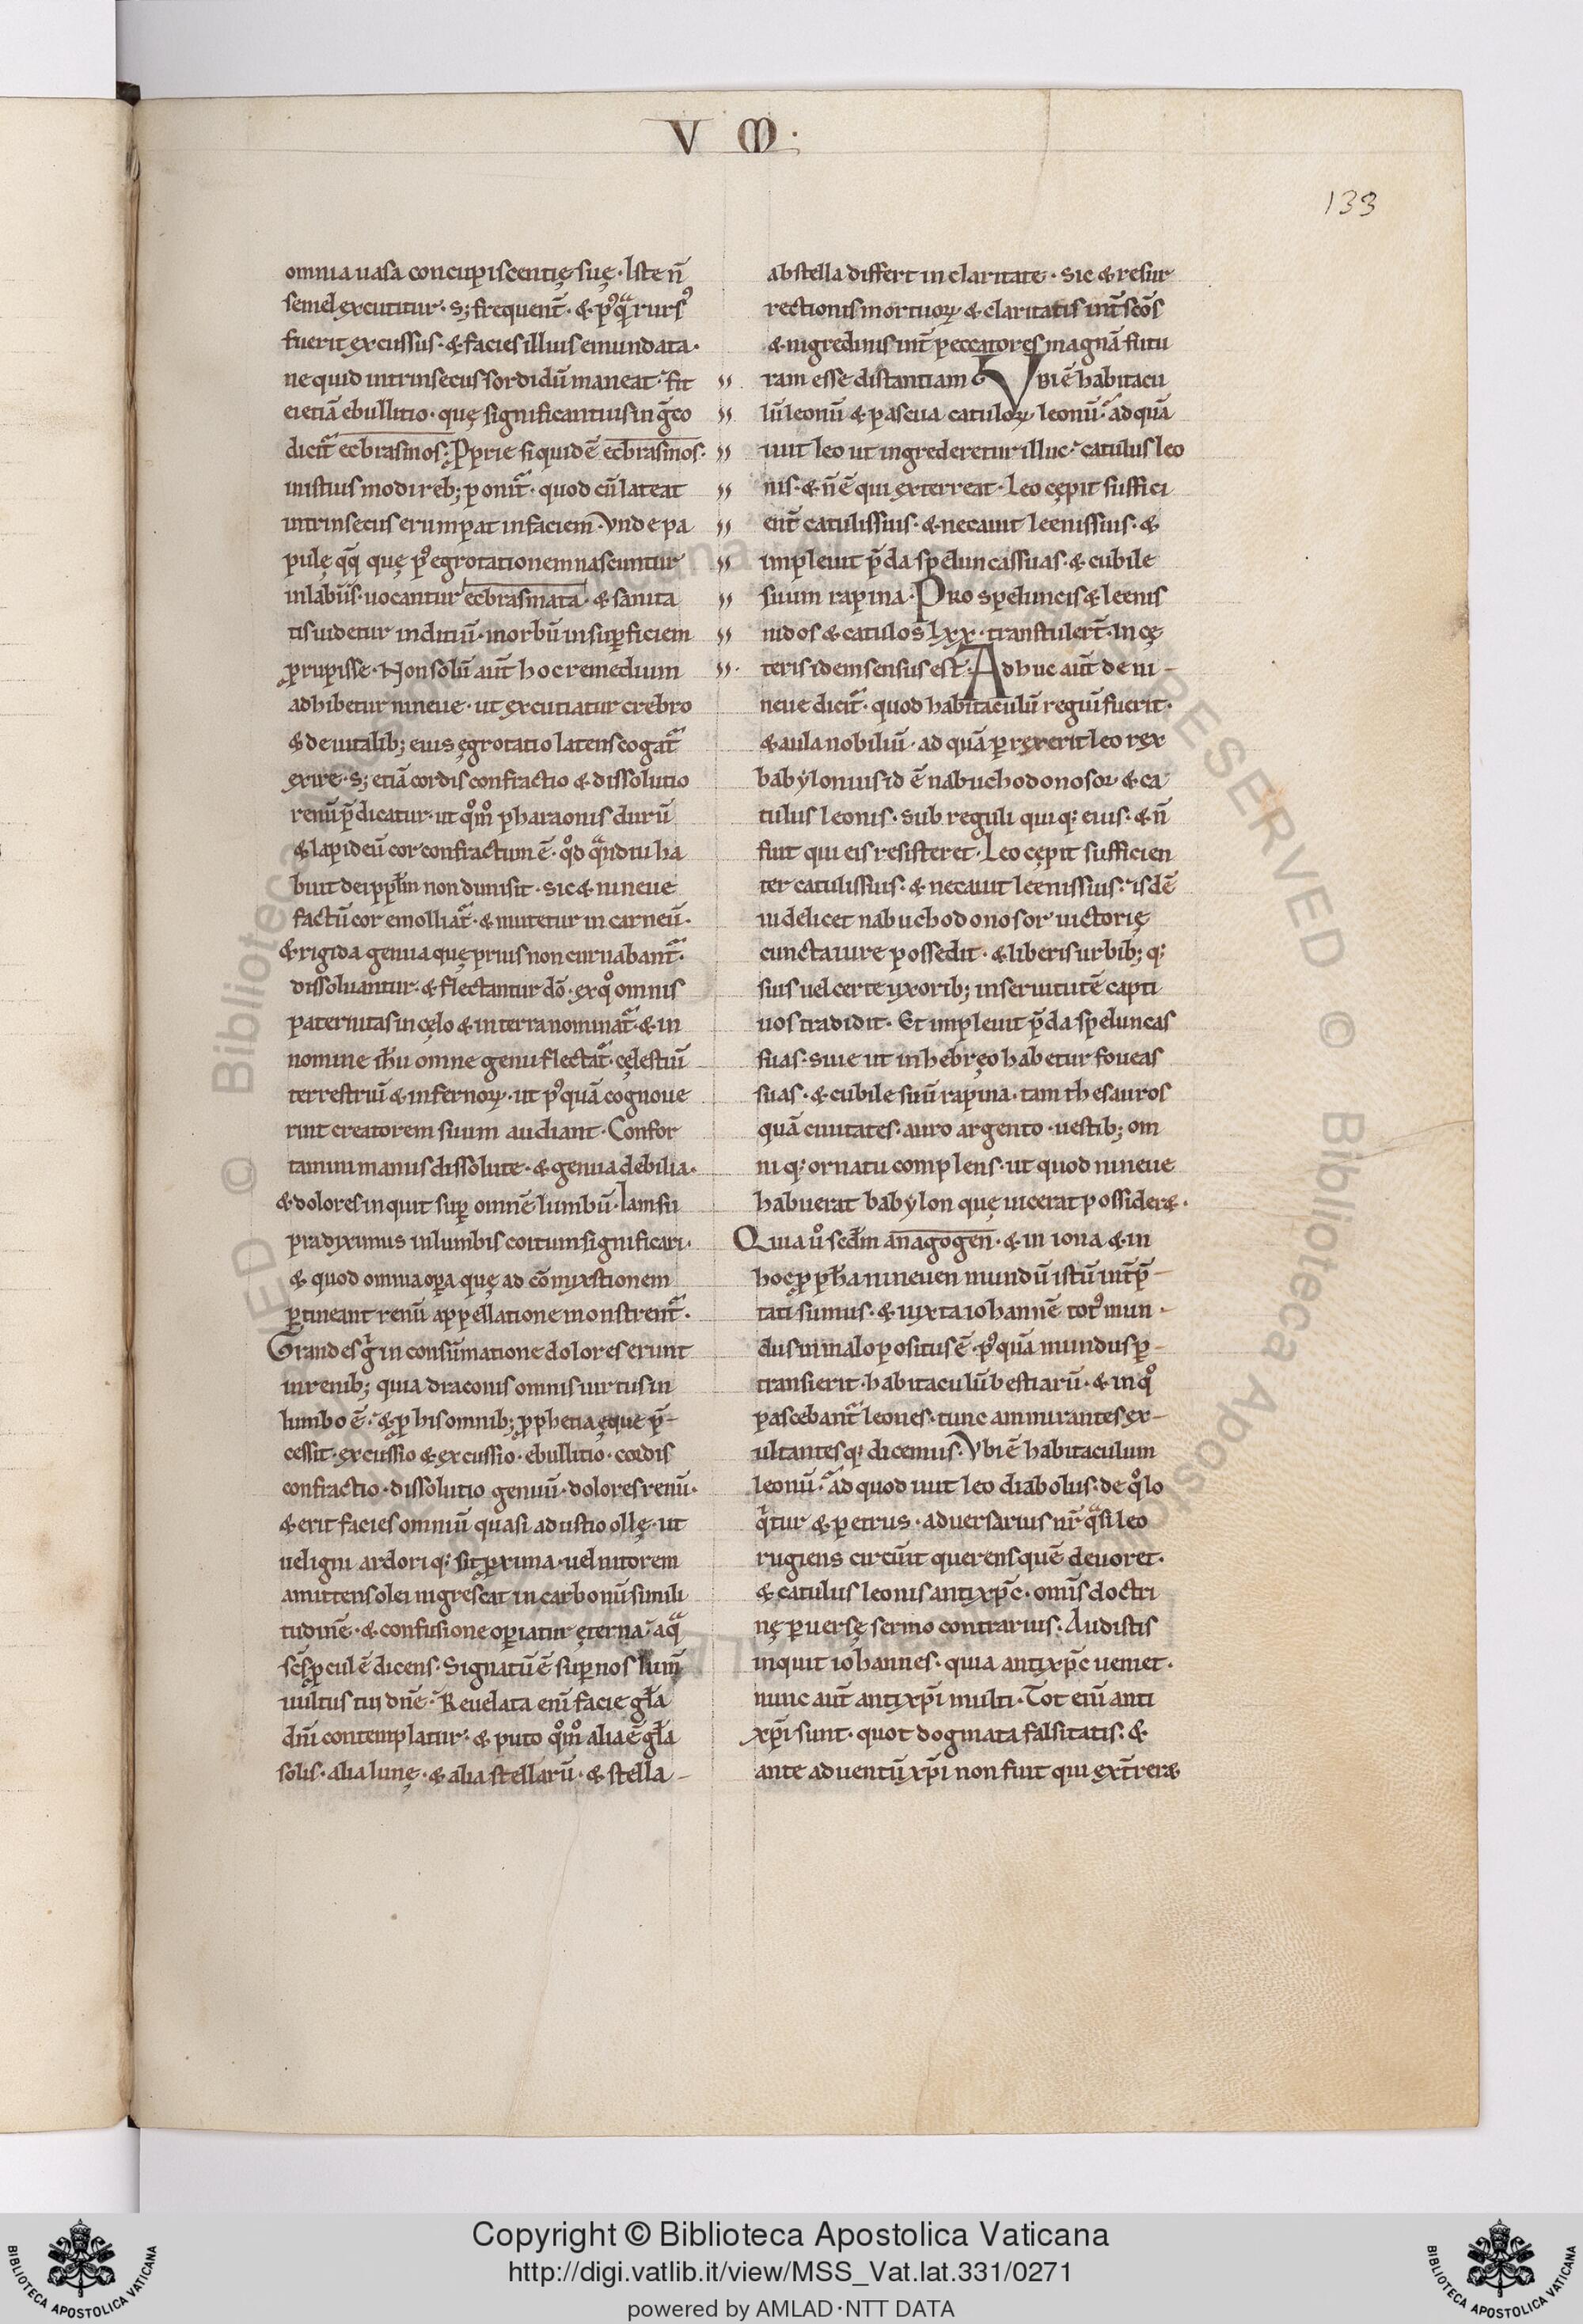 V M·
133
omnia uasa concupiscentię suę· Iste n̄
semel excutitur· s; frequent̄· & p᷒qͣ rursꝰ
fuerit excussus· & facies illius emundata·
ne quid intrinsecus sordidū maneat· fit
ei etiā ebullitio· quę significantius in gr̄co
dicit᷑ ecbrasmos· Pꝓrie siquidē ecbrasmos·
in istius modi reb; ponit᷑· quod cū lateat
intrinsecus erumpat in faciem· Vnde pa
pulę qq̄ quę pꝰ egrotationem nascuntur
in labiis· uocantur ecbrasmata· & sanita
tis uidetur inditiū· morbū in suꝑficiem
ꝓrupisse· Non solū aut̄ hoc remedium
adhibetur nineue· ut excutiatur crebro
& de uitalib; eius ęgrotatio latens cogat᷑
exire· s; etiā cordis confractio & dissolutio
renū p̄dicatur· ut qͦm̊ pharaonis durū
& lapideū cor confractum ē· qͦd qͣndiu ha
buit dei ppl̄m non dimisit· sic & nineue
factū cor emolliat᷑· & mutetur in carneū·
& rigida genua quę prius non curuabant᷑·
dissoluantur· & flectantur dō· ex qͦ omnis
paternitas in cęlo & in terra nominat᷑· & in
nomine ih̄u omne genu flectat᷑· cęlestiū
terrestriū & infernoꝝ· ut pꝰquā cognoue
rint creatorem suum audiant· Confor
tamini manus dissolute· & genua debilia·
& dolores inquit suꝑ omnē lumbū· Iam su
pra diximus in lumbis coitum significari·
& quod omnia oꝑa quę ad cōmyxtionem
ꝑtineant renū appellatione monstrent᷑·
Grandes gͥ in consūmatione dolores erunt
in renib; quia draconis omnis uirtus in
lumbo ē· & ꝓ his omnib; ꝓphetia ęque p̄–
cessit· excussio & excussio· ebullitio· cordis
confractio· dissolutio genuū· dolores renū·
& erit facies omniū quasi adustio ollę· ut
uel igni ardoriq; sit ꝓxima· uel nitorem
amittens olei nigrescat in carbonū simili
tudinē· & confusione oꝑiatur ęterna· a qͣ
sc̄s ꝓcul ē dicens· Signatū ē suꝑ nos lum̄
uultus tui dn̄e· Reuelata eni facie gl̄a
dn̄i contemplatur· & puto qͦm̊ alia ē gl̄a
solis· alia lunę· & alia stellarū· & stella –
ab stella differt in claritate· sic & resur
rectionis mortuoꝝ & claritatis int̄ sc̄os
& nigredinis int̄ peccatores magnā futu
ram esse distantiam· Vbi ē habitacu
lū leonū & pascua catuloꝝ leonū· ad quā
iuit leo ut ingrederetur illuc· catulus leo
nis· & n̄ ē qui exterreat· Leo cępit suffici
ent̄ catulis suis· & necauit leenis suis· &
impleuit p̄da speluncas suas· & cubile
suum rapina· Pro speluncis & leenis
nidos & catulos lxx· transtulert̄· In cę
teris idem sensus est· Adhuc aut̄ de ni –
neue dicit᷑· quod habitaculū regū fuerit·
& aula nobiliū· ad quā ꝑrexerit leo rex
babylonius id ē nabuchodonosor & ca
tulus leonis· sub reguli quiq; eius· & n̄
fuit qui eis resisteret· Leo cępit sufficien
ter catulis suis· & necauit leenis suis· isdē
uidelicet nabuchodonosor uictorię
cuncta iure possedit· & liberis urbib; q;
suis uel certe uxorib; in seruitutē capti
uos tradidit· Et impleuit p̄da speluncas
suas· siue ut in hebręo habetur foueas
suas· & cubile suū rapina· tam thesauros
quā ciuitates· auro argento· uestib; om
ni q; ornatu complens· ut quod nineue
habuerat babylon quę uicerat possideræ·
Quia uͦ scd̄m anagogen· & in iona & in
hoc ꝓph̄a nineuen mundū istū int̄p̄–
tati sumus· & iuxta iohannē totꝰ mun –
dus in malo positus ē· pꝰquā mundus ꝑ–
transierit· habitaculū bestiarū· & in qͦ
pascebant᷑ leones· tunc ammirantes ex–
ultantesq; dicemus· Vbi ē habitaculum
leonū· ad quod iuit leo diabolus· de qͦ lo
qͥtur & petrus· aduersarius nr̄ qͣsi leo
rugiens circūit querens quē deuoret·
& catulus leonis antixp̄c· omīs doctri
nę ꝑuersę sermo contrarius· Audistis
inquit iohannes· quia antixp̄c ueniet·
nunc aut̄ antixp̄i multi· Tot eni anti
xp̄i sunt· quot dogmata falsitatis· &
ante aduentū xp̄i non fuit qui ext̄reræ
Copyright © Biblioteca Apostolica Vaticana
http://digi.vatlib.it/view/MSS_Vat.lat.331/0271
powered by AMLAD·NTT DATA